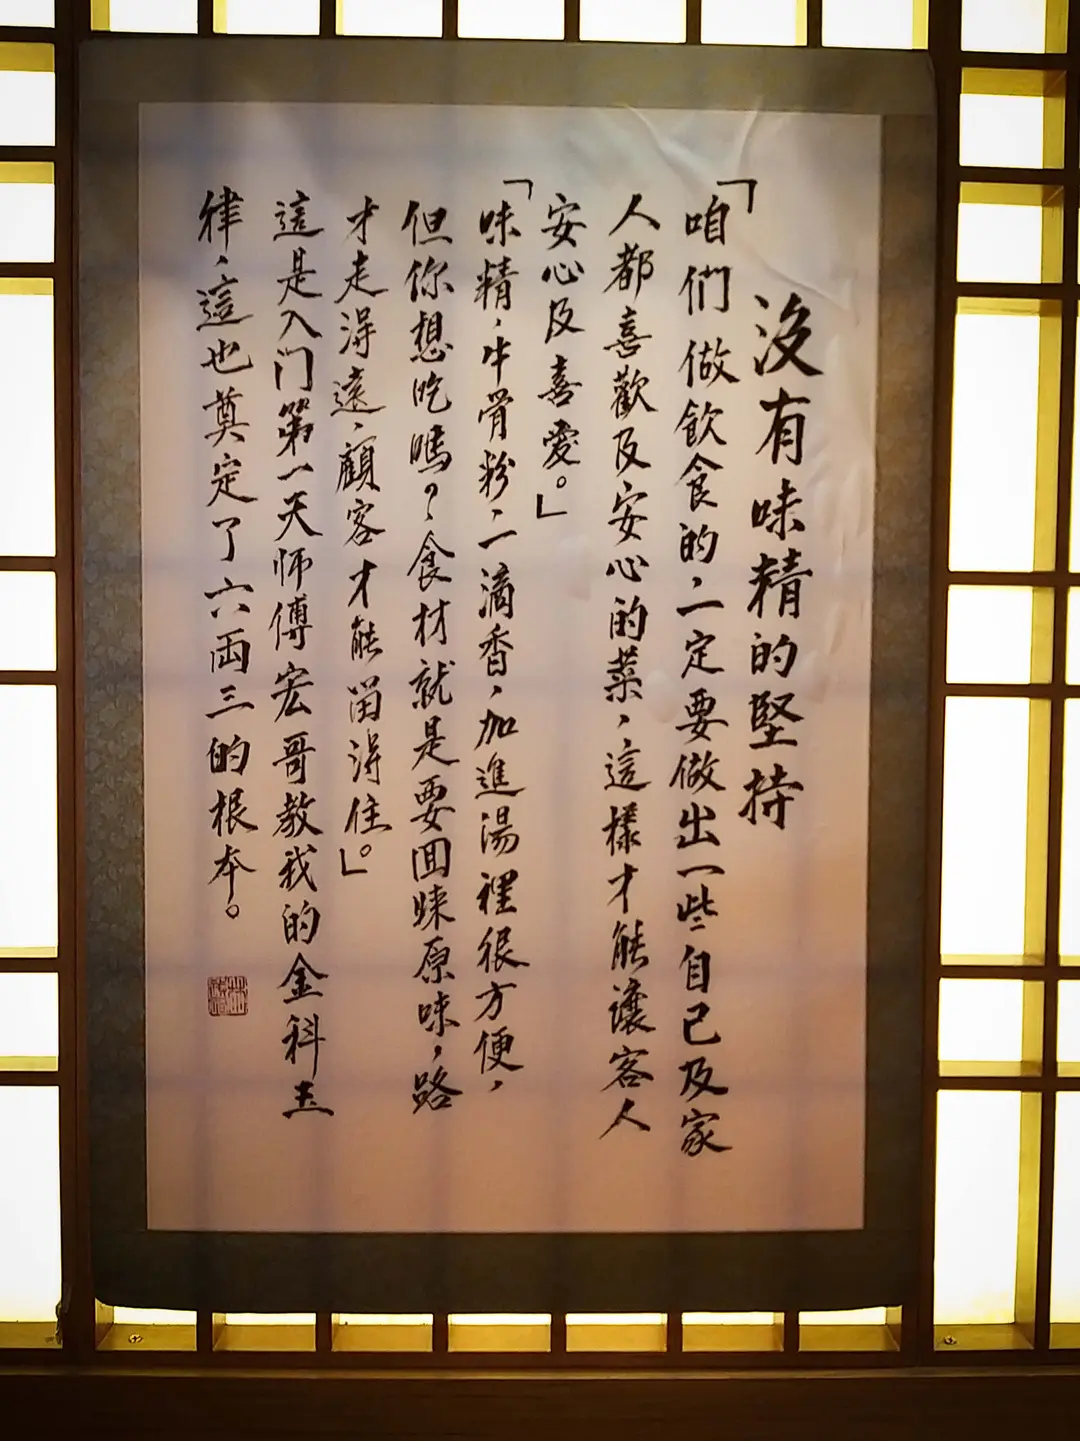 沒有味精的堅持
「咱們做飲食的,一定要做出一些自己及家
人都喜歡及安心的菜,這樣才能讓客人
安心及喜愛。」
「味精,牛骨粉,一滴香,加進湯裡很方便,
但你想吃嗎?,食材就是要回歸原味,路
才走得遠,顧客才能留得住。」
這是入门第一天师傅宏哥教我的金科玉
律,這也奠定了六両三的根本。